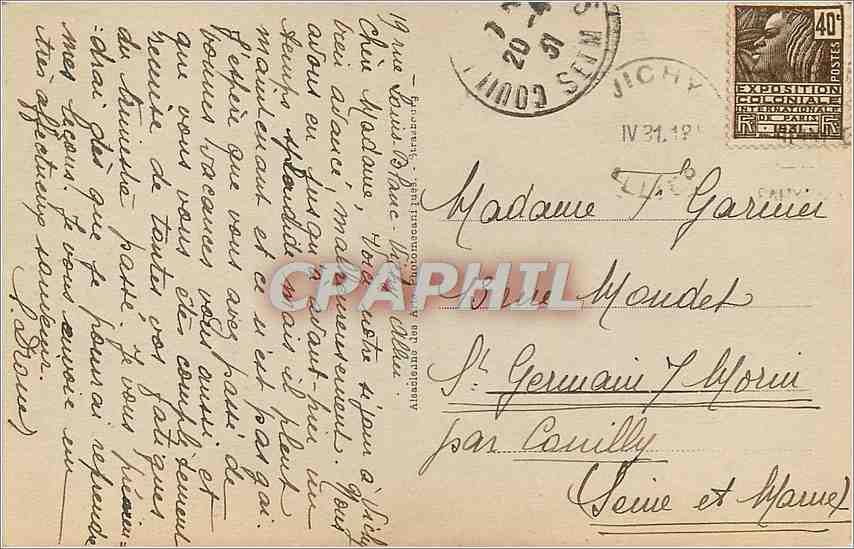 19 rue Louis Blanc - Vichy Allier.
Chère Madame, Voici notre séjour à Vichy
bien avancé malheureusement. Nous
avons eu jusqu'à avant-hier un
temps splendide mais il pleut
maintenant et ce n'est pas gai.
J'espère que vous avez passé de
bonnes vacances vous aussi et
que vous vous êtes complètement
remise de toutes vos fatigues
du trimestre passé. Je vous prévien-
-drai dès que je pourrai reprendre
mes leçons. Je vous envoie un
très affectueux
Alsacienne des Arts Photomécaniques - Strasbourg
20 - 4
31
COUILLY SEINE
VICHY
IV 31.
40c
POSTES
EXPOSITION
COLONIALE
INTERNATIONALE
DE PARIS
1931
Madame F. Garnier
rue Moudet
St Germain s/ Morin
par Couilly
(Seine et Marne)
CPAPHIL